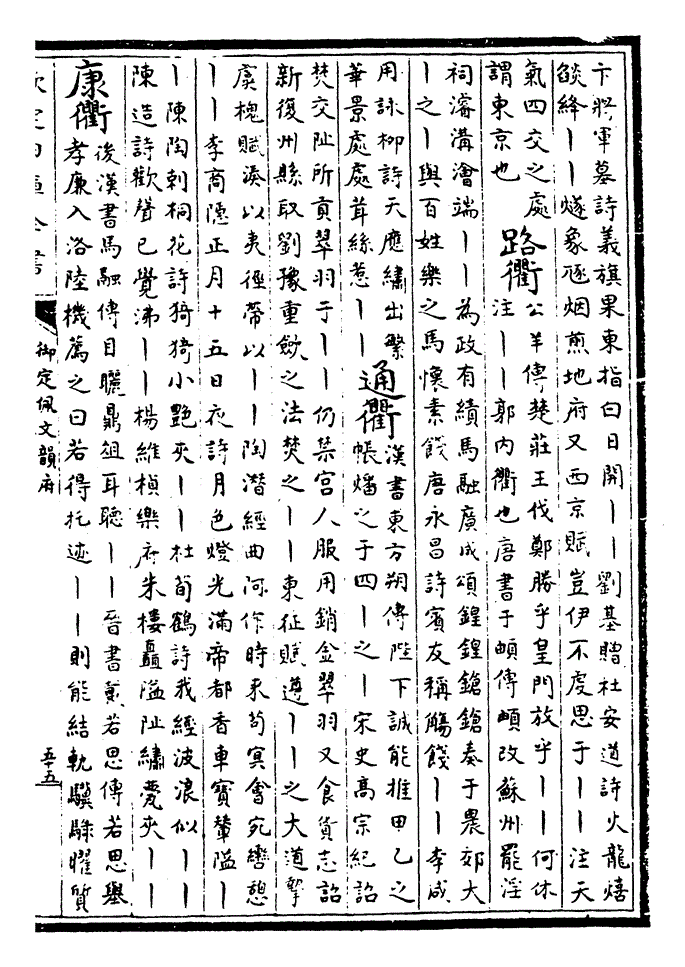 卞將軍墓詩義旗果東指白日開丨丨劉基贈杜安道詩火龍熺
燄絳丨丨燧象烟煎地府又西京賦豈伊不虔思于丨丨注天
氣四交之處
謂東京也
路衢
公羊傳楚莊王伐鄭勝乎皇門放乎丨丨何休
注丨丨郭内衢也唐書于頔傳頔改蘇州罷淫
祠濬溝澮端丨丨為政有績馬融廣成頌鍠鍠鎗鎗奏于農郊大
丨之丨與百姓樂之馬懷素餞唐永昌詩賓友稱觴餞丨丨李咸
用詠柳詩天應繡出繁
華景處處茸絲惹丨丨
通衢
漢書東方朔傳陛下誠能推甲乙之
帳燔之于四丨之丨宋史高宗紀詔
焚交阯所貢翠羽于丨丨仍禁宮人服用銷金翠羽又食貨志詔
新復州縣取劉豫重歛之法焚之丨丨東征賦遵丨丨之大道擎
虞槐賦湊以夷徑帶以丨丨陶潛經曲阿作時來苟冥會宛轡憩
丨丨李商隱正月十五日夜詩月色燈光滿帝都香車寶輦隘丨
丨陳陶刺桐花詩猗猗小艷夾丨丨杜荀鶴詩我經波浪似丨丨
陳造詩歡聲已覺沸丨丨楊維楨樂府朱樓矗隘阯繡甍夾丨丨
康衢
後漢書馬融傳目矖鼎俎耳聽丨丨晉書戴若思傳若思舉
孝廉入洛陸機薦之曰若得托迹丨丨則能結軌驥騄曜質
欽定四庫全書
御定佩文韻府
五十五